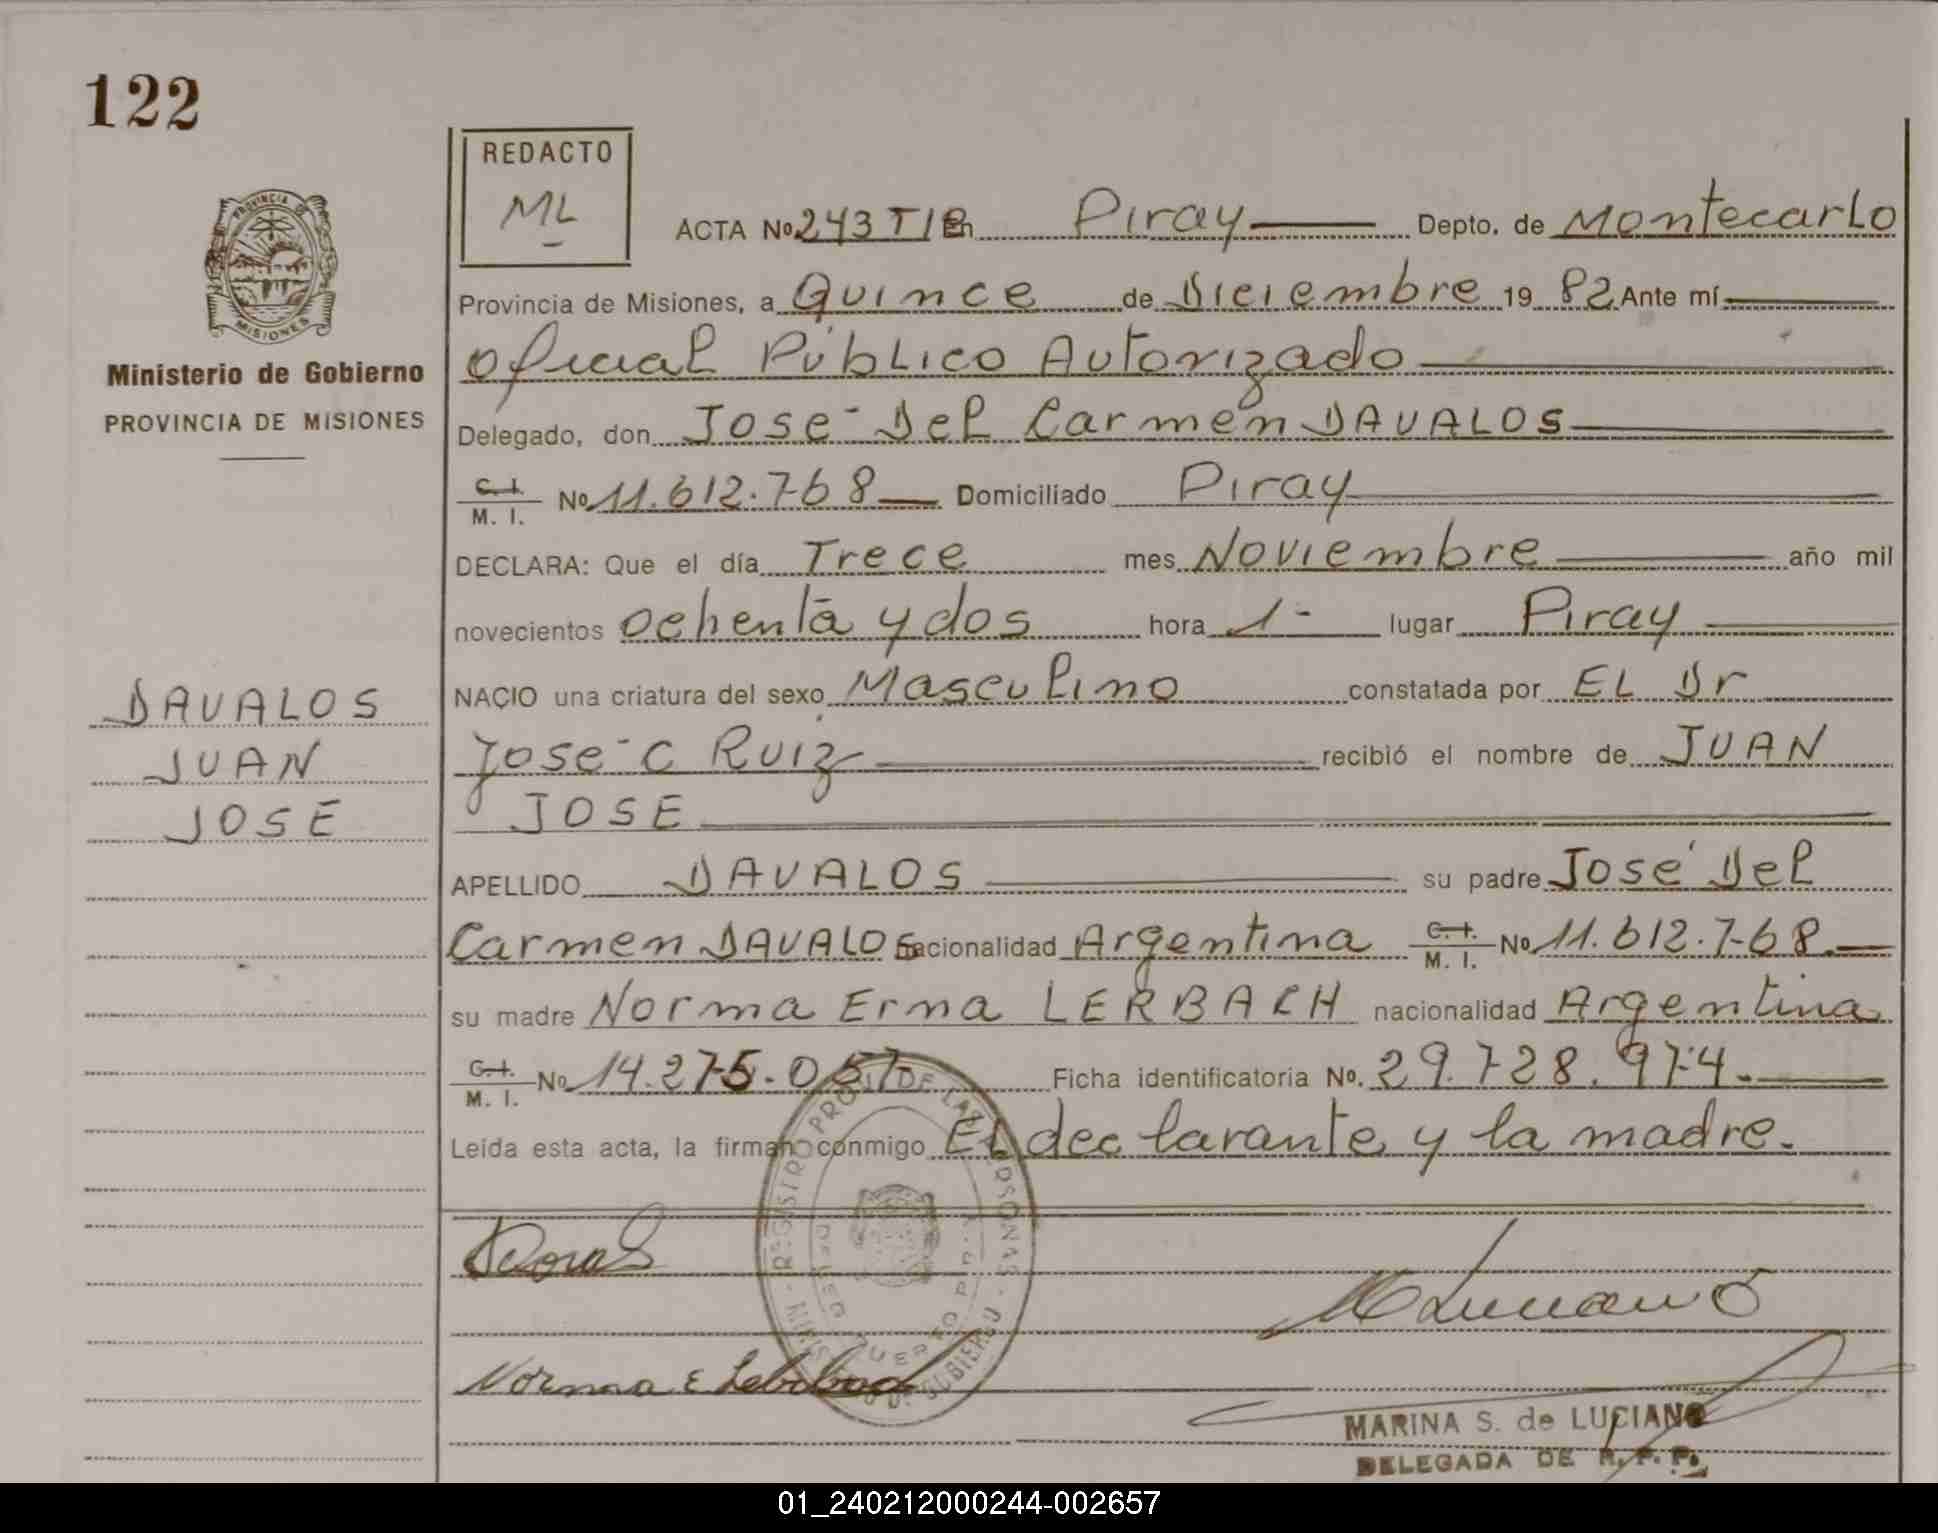 122
REDACTO
ML
PROVINCIA DE
MISIONES
ACTA Nº 243 TI En Piray Depto. de Montecarlo
Ministerio de Gobierno
PROVINCIA DE MISIONES
Provincia de Misiones, a Quince de Diciembre 19 82 Ante mí
Oficial Público Autorizado
Delegado, don José Del Carmen DAVALOS
C. I. / M. I. Nº 11.612.768 Domiciliado Piray
DECLARA: Que el día Trece mes Noviembre año mil
novecientos ochenta y dos hora 1- lugar Piray
NACIO una criatura del sexo Masculino constatada por EL Dr
José C Ruiz recibió el nombre de JUAN
JOSE
DAVALOS
JUAN
JOSE
APELLIDO DAVALOS su padre José Del
Carmen DAVALOS nacionalidad Argentina C. I. / M. I. Nº 11.612.768.
su madre Norma Erna LERBACH nacionalidad Argentina
C. I. / M. I. Nº 14.275.057 Ficha identificatoria No. 29.728.974.
Leída esta acta, la firman conmigo EL declarante y la madre.
REGISTRO PROV. DE LAS PERSONAS
PUERTO
Norma E
M Luciano
MARINA S. de LUCIANO
DELEGADA DE R. P. P.
01_240212000244-002657